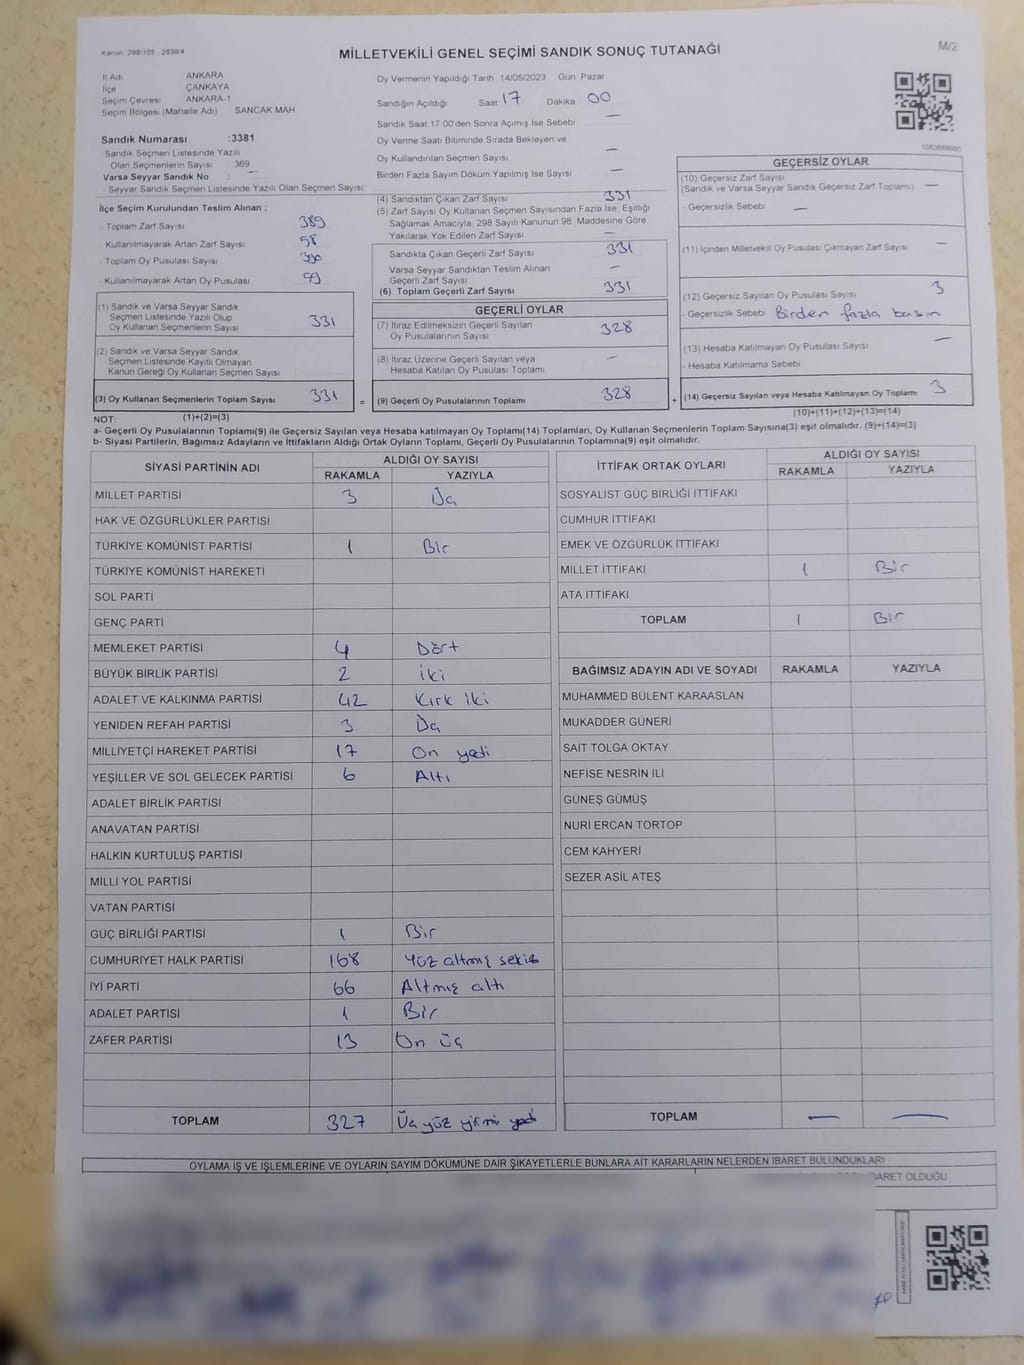 Kanun 298/105, 2839/4
MİLLETVEKİLİ GENEL SEÇİMİ SANDIK SONUÇ TUTANAĞI
M/2
İl Adı ANKARA
İlçe ÇANKAYA
Seçim Çevresi ANKARA-1
Seçim Bölgesi (Mahalle Adı) SANCAK MAH
Sandık Numarası :3381
- Sandık Seçmen Listesinde Yazılı
Olan Seçmenlerin Sayısı 369
Varsa Seyyar Sandık No : —
- Seyyar Sandık Seçmen Listesinde Yazılı Olan Seçmen Sayısı
Oy Vermenin Yapıldığı Tarih 14/05/2023 Gün Pazar
Sandığın Açıldığı Saat 17 Dakika 00
Sandık Saat 17.00'den Sonra Açımış İse Sebebi —
Oy Verme Saati Bitiminde Sırada Bekleyen ve
Oy Kullandırılan Seçmen Sayısı —
Birden Fazla Sayım Döküm Yapılmış İse Sayısı —
İlçe Seçim Kurulundan Teslim Alınan ;
- Toplam Zarf Sayısı 389
- Kullanılmayarak Artan Zarf Sayısı 58
- Toplam Oy Pusulası Sayısı
- Kullanılmayarak Artan Oy Pusulası
(1) Sandık ve Varsa Seyyar Sandık
Seçmen Listesinde Yazılı Olup
Oy Kullanan Seçmenlerin Sayısı 331
(2) Sandık ve Varsa Seyyar Sandık
Seçmen Listesinde Kayıtlı Olmayan
Kanun Gereği Oy Kullanan Seçmen Sayısı
(3) Oy Kullanan Seçmenlerin Toplam Sayısı 331 =
(1)+(2)=(3)
(4) Sandıktan Çıkan Zarf Sayısı 331
(5) Zarf Sayısı Oy Kullanan Seçmen Sayısından Fazla İse, Eşitliği
Sağlamak Amacıyla, 298 Sayılı Kanunun 98. Maddesine Göre
Yakılarak Yok Edilen Zarf Sayısı —
Sandıkta Çıkan Geçerli Zarf Sayısı 331
Varsa Seyyar Sandıktan Teslim Alınan
Geçerli Zarf Sayısı —
(6) Toplam Geçerli Zarf Sayısı 331
GEÇERLİ OYLAR
(7) İtiraz Edilmeksizin Geçerli Sayılan
Oy Pusulalarının Sayısı 328
(8) İtiraz Üzerine Geçerli Sayılan veya
Hesaba Katılan Oy Pusulası Toplamı —
(9) Geçerli Oy Pusulalarının Toplamı 328 +
GEÇERSİZ OYLAR
(10) Geçersiz Zarf Sayısı
(Sandık ve Varsa Seyyar Sandık Geçersiz Zarf Toplamı) —
- Geçersizlik Sebebi —
(11) İçinden Milletvekili Oy Pusulası Çıkmayan Zarf Sayısı —
(12) Geçersiz Sayılan Oy Pusulası Sayısı 3
- Geçersizlik Sebebi Birden fazla basım
(13) Hesaba Katılmayan Oy Pusulası Sayısı —
- Hesaba Katılmama Sebebi
(14) Geçersiz Sayılan veya Hesaba Katılmayan Oy Toplamı 3
(10)+(11)+(12)+(13)=(14)
NOT:
a- Geçerli Oy Pusulalarının Toplamı(9) ile Geçersiz Sayılan veya Hesaba katılmayan Oy Toplamı(14) Toplamları, Oy Kullanan Seçmenlerin Toplam Sayısına(3) eşit olmalıdır. (9)+(14)=(3)
b- Siyasi Partilerin, Bağımsız Adayların ve İttifakların Aldığı Ortak Oyların Toplamı, Geçerli Oy Pusulalarının Toplamına(9) eşit olmalıdır.
SİYASİ PARTİNİN ADI ALDIĞI OY SAYISI
RAKAMLA YAZIYLA
MİLLET PARTİSİ 3 Üç
HAK VE ÖZGÜRLÜKLER PARTİSİ
TÜRKİYE KOMÜNİST PARTİSİ 1 Bir
TÜRKİYE KOMÜNİST HAREKETİ
SOL PARTİ
GENÇ PARTİ
MEMLEKET PARTİSİ 4 Dört
BÜYÜK BİRLİK PARTİSİ 2 iki
ADALET VE KALKINMA PARTİSİ 42 Kırk iki
YENİDEN REFAH PARTİSİ 3 Üç
MİLLİYETÇİ HAREKET PARTİSİ 17 On yedi
YEŞİLLER VE SOL GELECEK PARTİSİ 6 Altı
ADALET BİRLİK PARTİSİ
ANAVATAN PARTİSİ
HALKIN KURTULUŞ PARTİSİ
MİLLİ YOL PARTİSİ
VATAN PARTİSİ
GÜÇ BİRLİĞİ PARTİSİ 1 Bir
CUMHURİYET HALK PARTİSİ 168 Yüz altmış sekiz
İYİ PARTİ 66 Altmış altı
ADALET PARTİSİ 1 Bir
ZAFER PARTİSİ 13 On üç
TOPLAM 327 Üç yüz yirmi yedi
İTTİFAK ORTAK OYLARI ALDIĞI OY SAYISI
RAKAMLA YAZIYLA
SOSYALİST GÜÇ BİRLİĞİ İTTİFAKI
CUMHUR İTTİFAKI
EMEK VE ÖZGÜRLÜK İTTİFAKI
MİLLET İTTİFAKI 1 Bir
ATA İTTİFAKI
TOPLAM 1 Bir
BAĞIMSIZ ADAYIN ADI VE SOYADI RAKAMLA YAZIYLA
MUHAMMED BÜLENT KARAASLAN
MUKADDER GÜNERİ
SAİT TOLGA OKTAY
NEFİSE NESRİN İLİ
GÜNEŞ GÜMÜŞ
NURİ ERCAN TORTOP
CEM KAHYERİ
SEZER ASIL ATEŞ
TOPLAM — —
OYLAMA İŞ VE İŞLEMLERİNE VE OYLARIN SAYIM DÖKÜMÜNE DAİR ŞİKAYETLERLE BUNLARA AİT KARARLARIN NELERDEN İBARET BULUNDUKLARI
BARET OLDUĞU